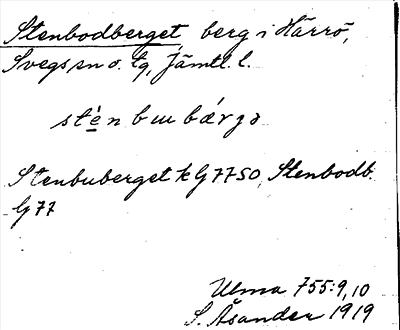 Stenbodberget, berg i Härrö,
Svegs sn o. tg, Jämtl. l.
stè̱n bɯ bærgə
Stenbuberget k G 7750, Stenbodb.
G 77
Ulma 755:9,10
S. Åsander 1919